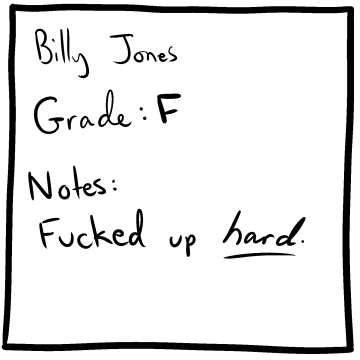 Billy Jones
Grade: F
Notes:
Fucked up hard.